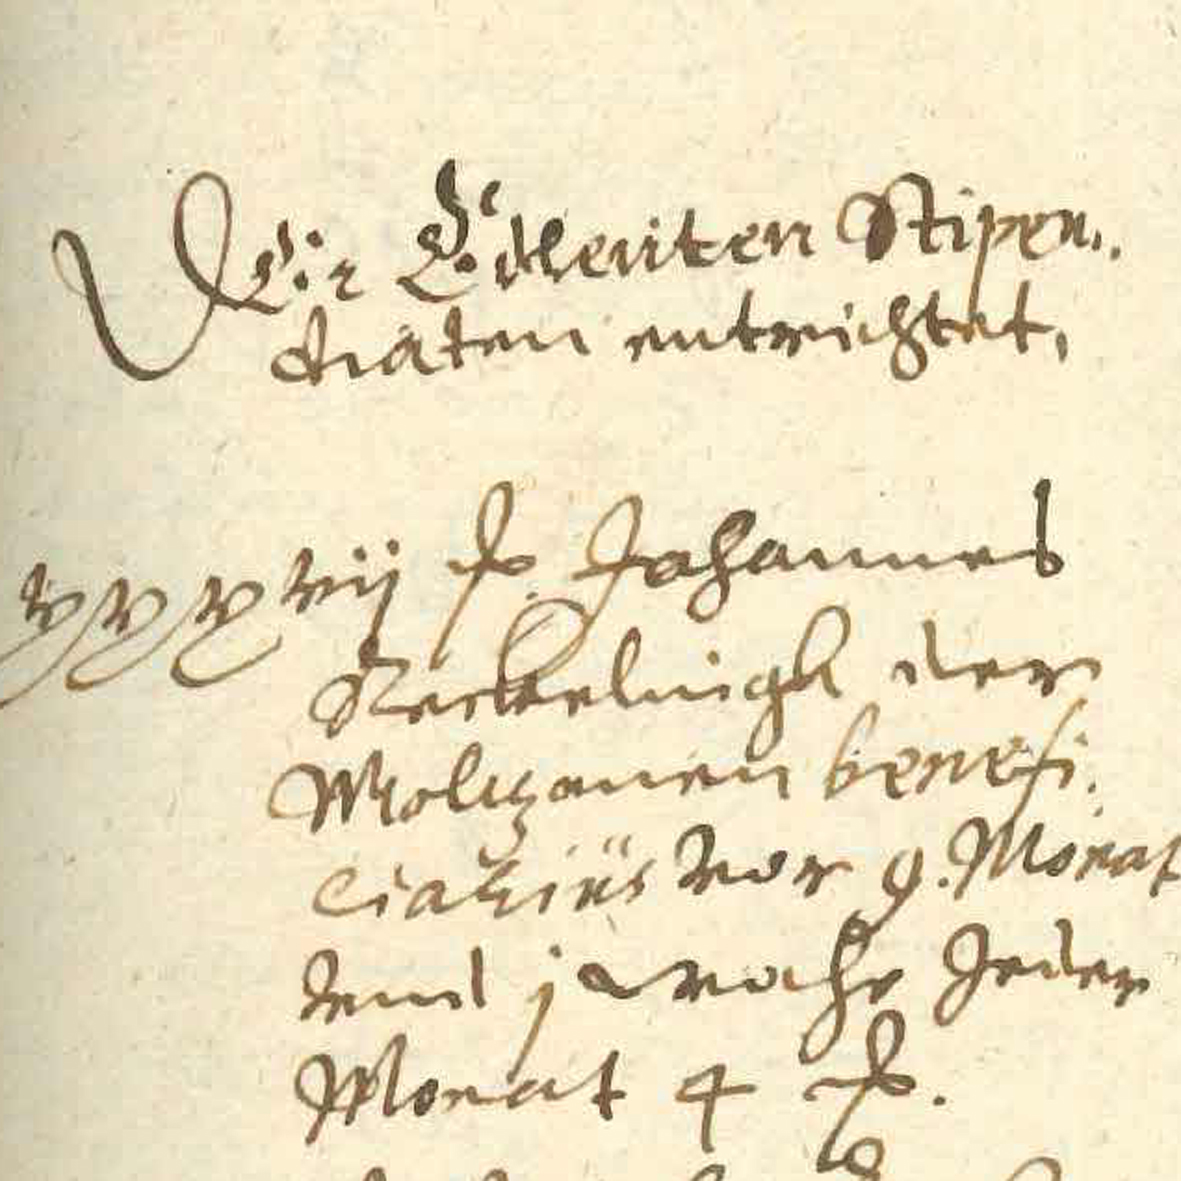 Die Edlenten Stipen.
diaten entrichtet,
xxxvij f. Johannes
Reckelingk der
Moltzanen benefi.
ciatus vor 9. Monat
vnd j woche Jeder
Monat 4 f.